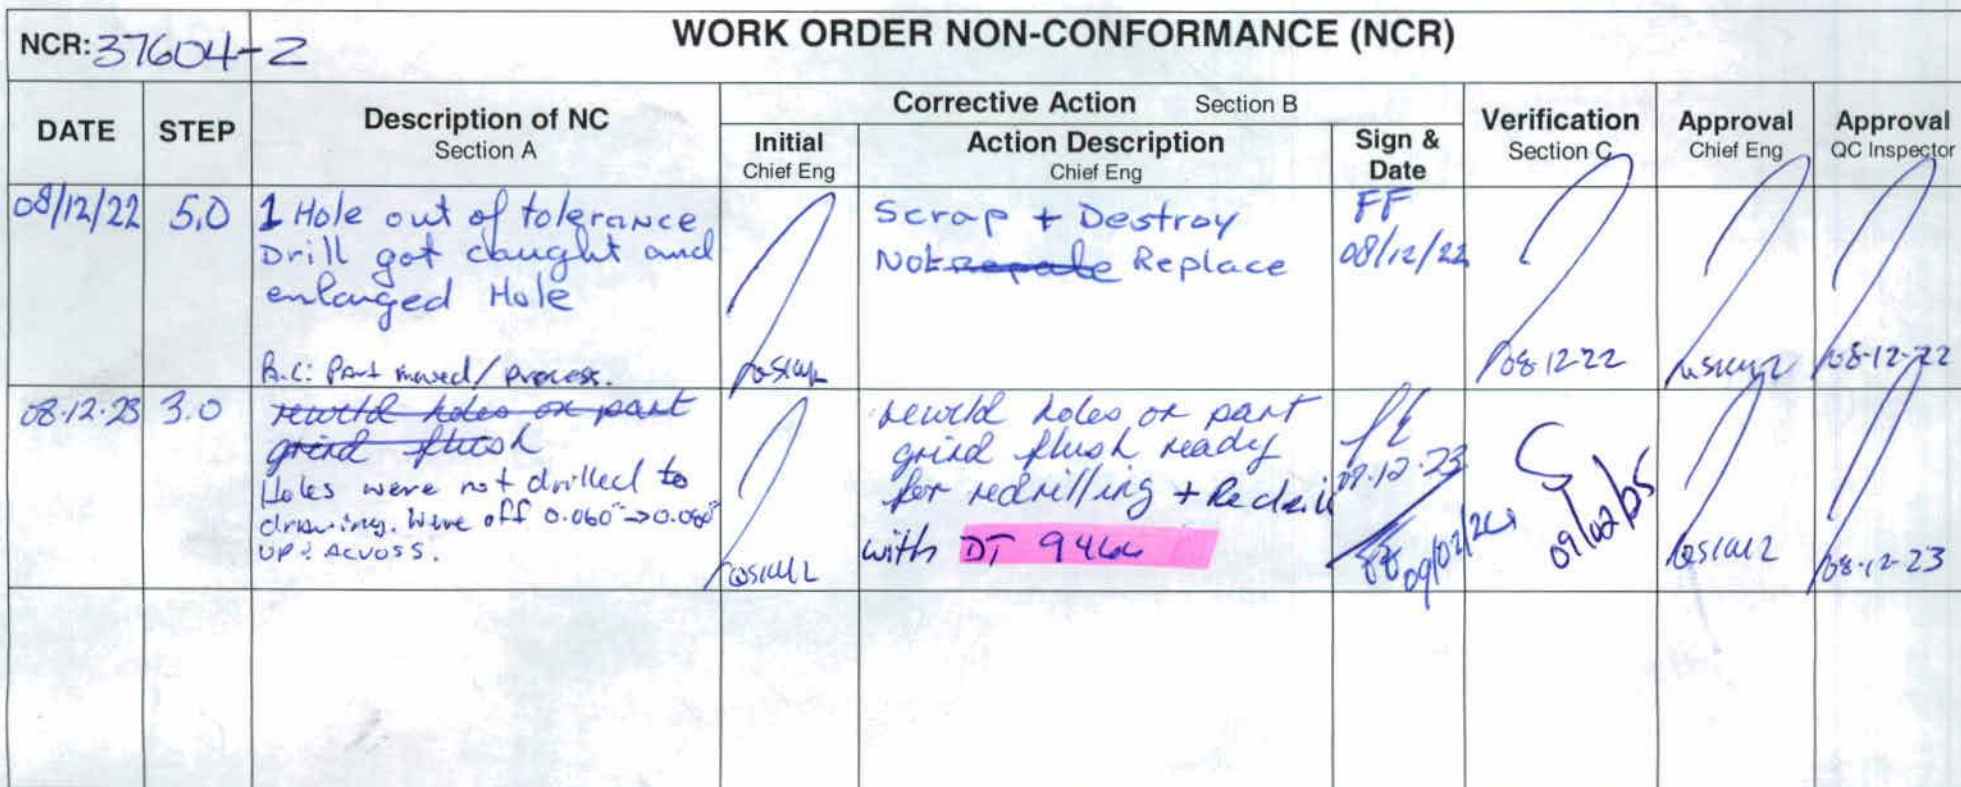 NCR: 37604-2
WORK ORDER NON-CONFORMANCE (NCR)
DATE
STEP
Description of NC
Section A
Corrective Action Section B
Initial
Chief Eng
Action Description
Chief Eng
Sign &
Date
Verification
Section C
Approval
Chief Eng
Approval
QC Inspector
08/12/22
5.0
1 Hole out of tolerance
Drill got caught and
enlarged Hole
R.C: Part moved/process.
Scrap + Destroy
Not Replace
FF
08/12/22
08-12-22
08-12-22
08.12.23
3.0
reweld holes on part
grind flush
Holes were not drilled to
drawing. Were off 0.060"->0.080"
UP & ACVOSS.
reweld holes on part
grind flush ready
for redrilling + Redrill
with DT 9466
09/02/05
08-12-23